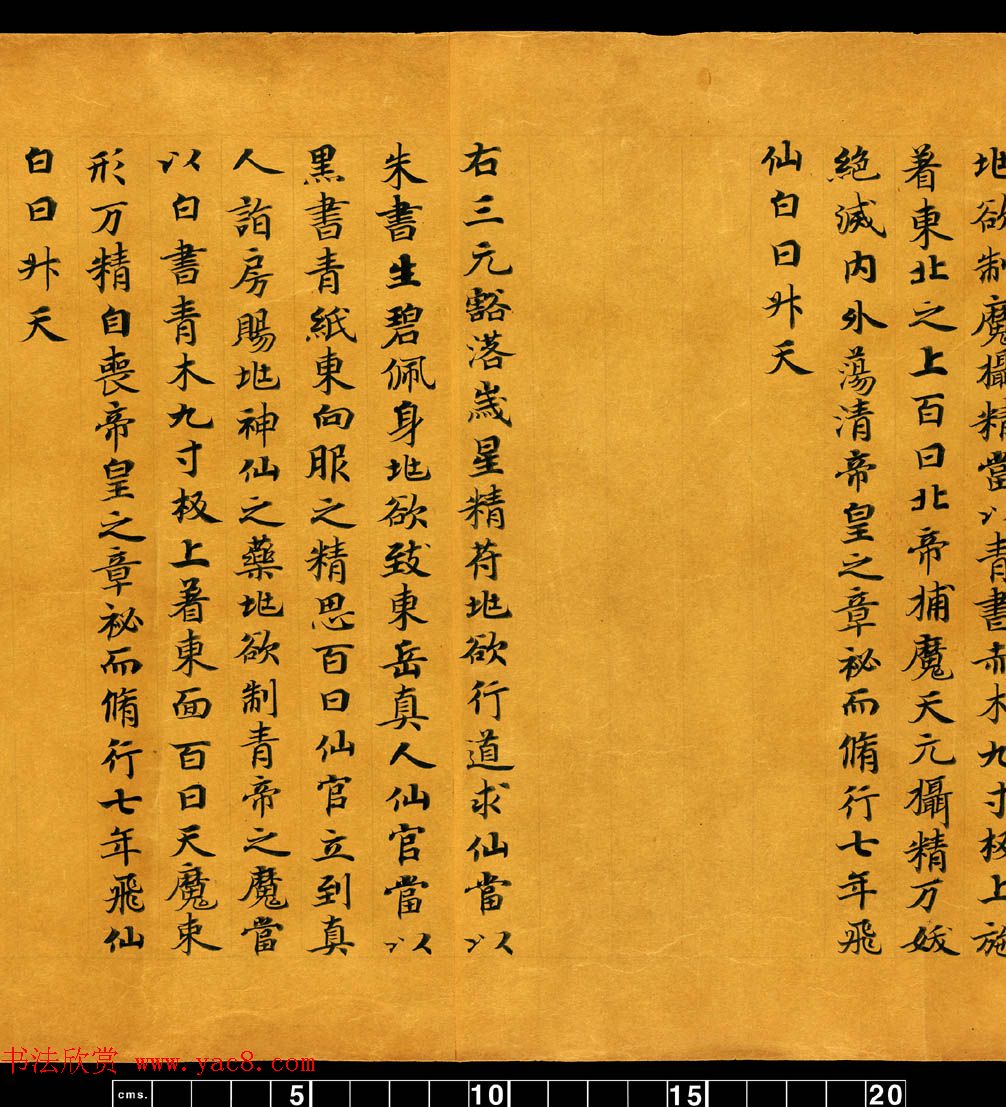 地欲制魔攝精當以青書赤木九寸板上施
着東北之上百日北帝捕魔天元攝精万妖
絕滅內外蕩清帝皇之章祕而脩行七年飛
仙白日升天
右三元豁落歲星精苻地欲行道求仙當以
朱書生碧佩身地欲致東岳真人仙官當以
黑書青紙東向服之精思百日仙官立到真
人詣房賜地神仙之藥地欲制青帝之魔當
以白書青木九寸板上着東面百日天魔束
形万精自喪帝皇之章祕而脩行七年飛仙
白日升天
书法欣赏 www.yac8.com
cms. 5 10 15 20